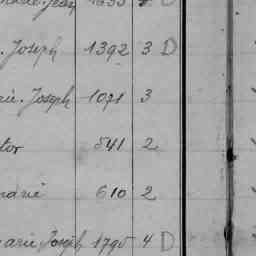 . Joseph 1392 3 D
rie. Joseph 1071 3
tor 541 2
610 2
arie. Joseph 1795 4 D